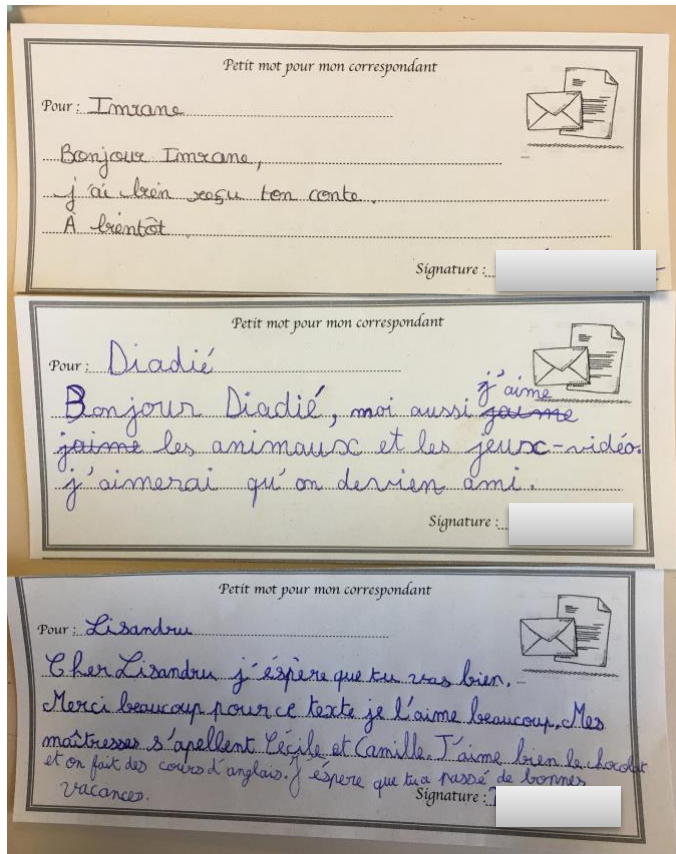 Petit mot pour mon correspondant
Pour : Imrane
Bonjour Imrane,
j'ai bien reçu ton conte.
À bientôt
Signature :
Petit mot pour mon correspondant
Pour : Diadié
j'aime
Bonjour Diadié, moi aussi jaime
jaime les animaux et les jeux-vidéo.
j'aimerai qu'on devien ami.
Signature :
Petit mot pour mon correspondant
Pour : Lisandru
Cher Lisandru j'éspère que tu vas bien.
Merci beaucoup pour ce texte je l'aime beaucoup. Mes
maîtresses s'apellent Cécile et Camille. J'aime bien le chocolat
et on fait des cours d'anglais. J'éspere que tu a passé de bonnes
vacances.
Signature :